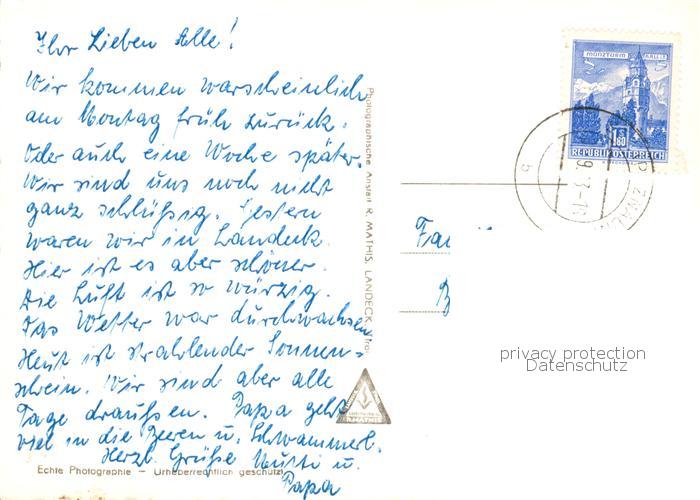 Ihr Lieben Alle!
Wir kommen warscheinlich
am Montag früh zurück.
Oder auch eine Woche später.
Wir sind uns noch nicht
ganz schlüßig. Gestern
waren wir in Landeck.
Hier ist es aber schöner.
Die Luft ist so würzig.
Das Wetter war durchwachsen
Heut ist strahlender Sonnen=
schein. Wir sind aber alle
Tage draußen. Papa geht
viel in die Beeren u. Schwammerl.
Herzl. Grüße Mutti u.
Papa
Echte Photographie – Urheberrechtlich geschützt
Photographische Anstalt R. MATHIS, LANDECK, Tirol
MÜNZTURM HALL I.T.
S 1.80
REPUBLIK ÖSTERREICH
b
Fa
privacy protection
Datenschutz